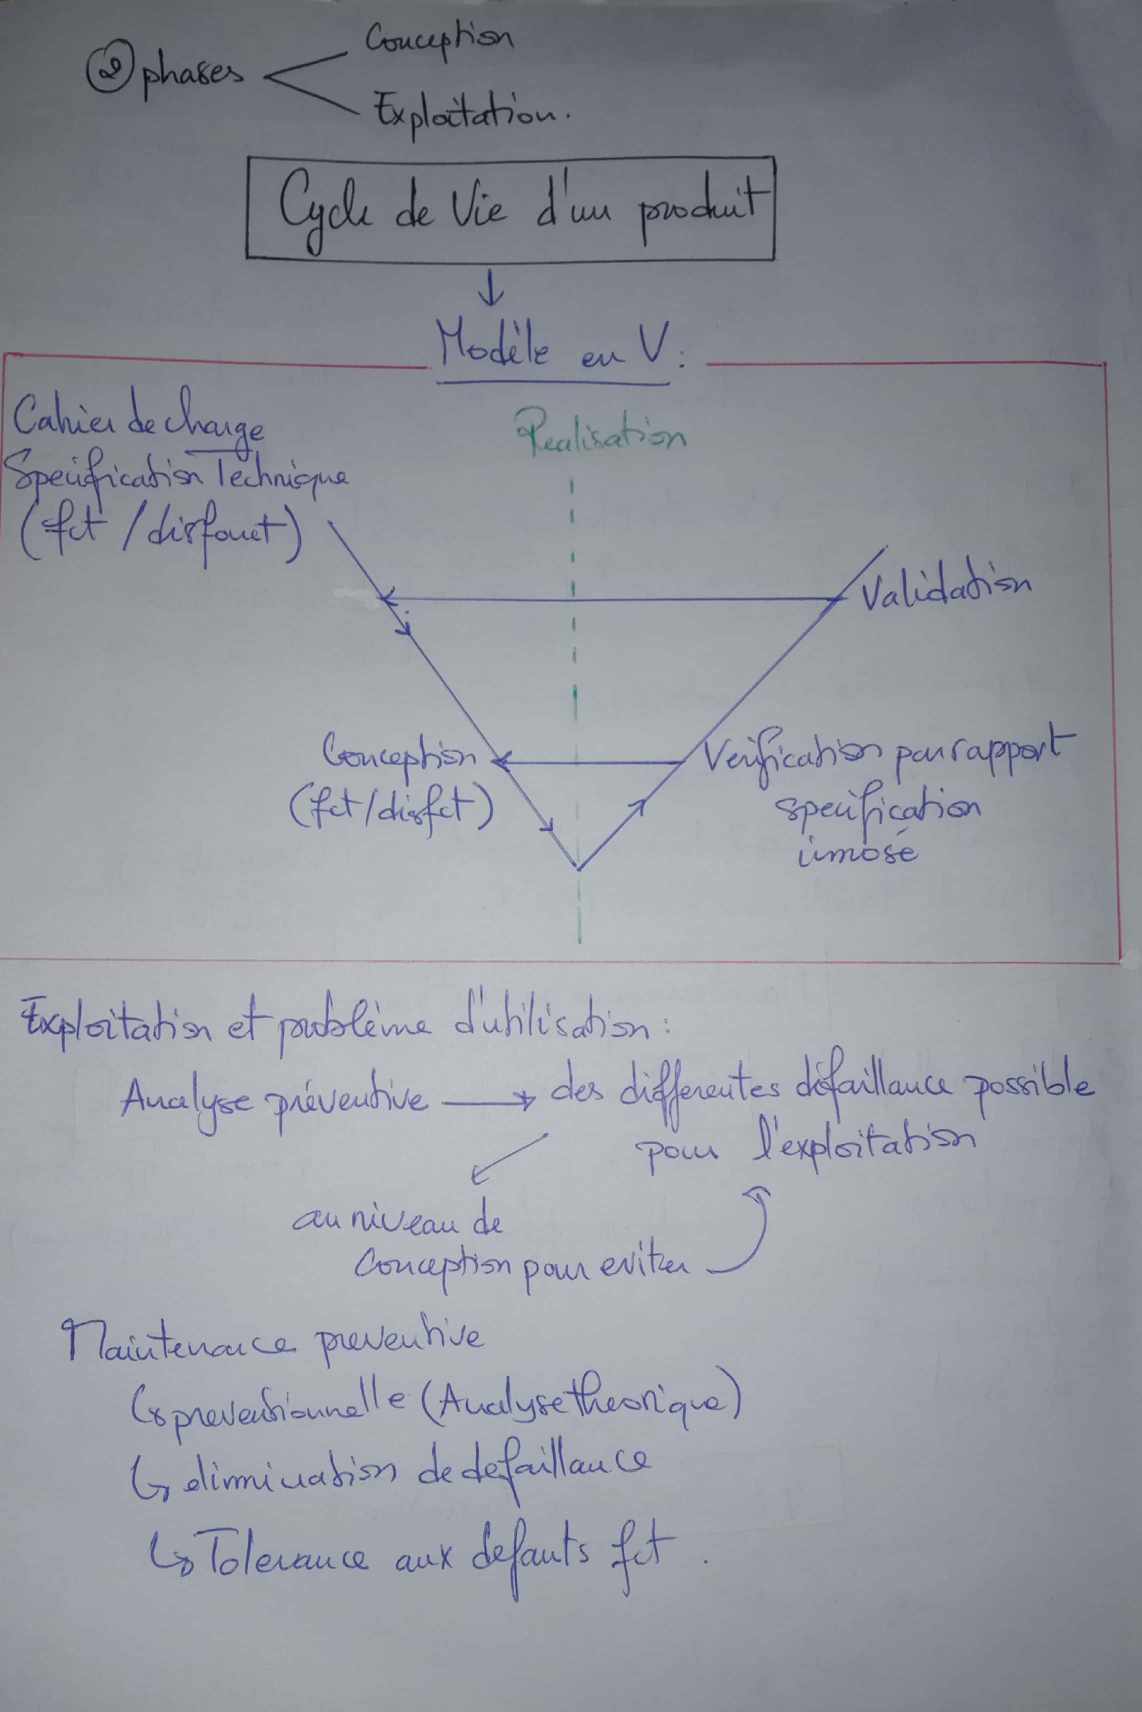 ② phases
Conception
Exploitation.
Cycle de Vie d'un produit
Modèle en V :
Cahier de charge
Realisation
Spécification Technique
(fct / disfonct)
Validation
Conception
(fct/disfct)
Verification par rapport
specification
imosé
Exploitation et problème d'utilisation :
Analyse préventive → des differentes défaillance possible
pour l'exploitation
au niveau de
Conception pour eviter
Maintenance preventive
↳ preventionnelle (Analyse theorique)
↳ elimination de defaillance
↳ Tolerance aux defauts fct .